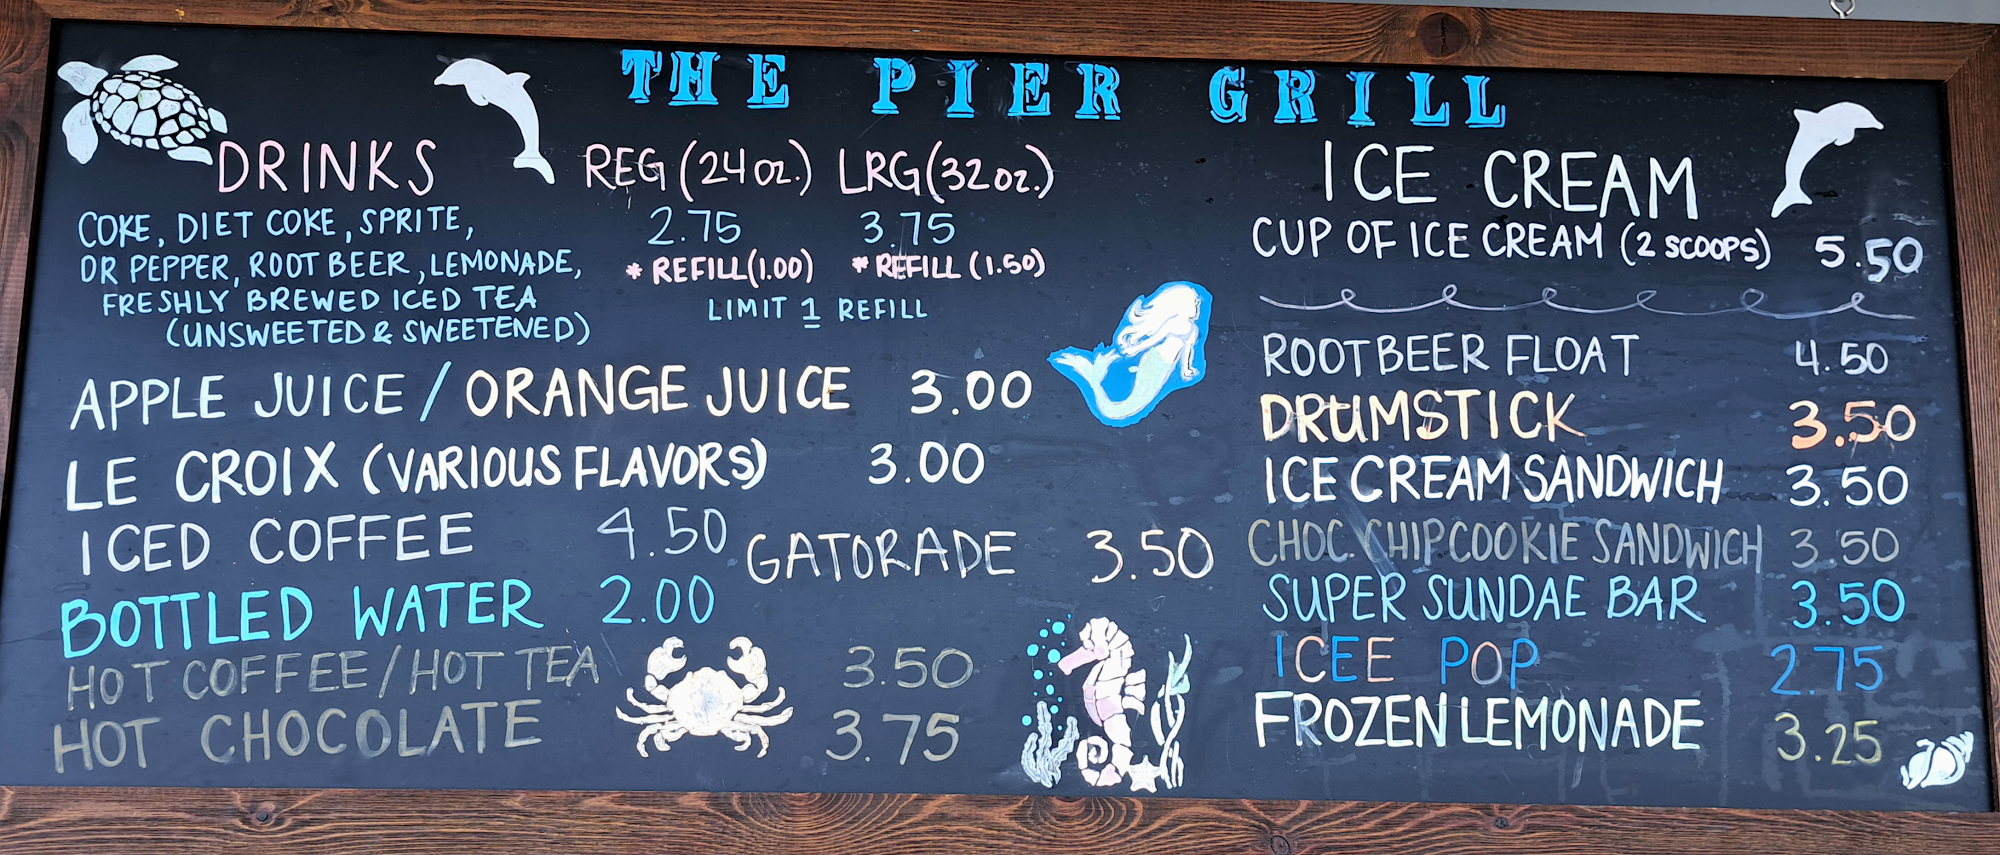 THE PIER GRILL
DRINKS REG (24 oz.) LRG (32 oz.)
COKE, DIET COKE, SPRITE, 2.75 3.75
DR PEPPER, ROOT BEER, LEMONADE, * REFILL (1.00) * REFILL (1.50)
FRESHLY BREWED ICED TEA LIMIT 1 REFILL
(UNSWEETED & SWEETENED)
APPLE JUICE / ORANGE JUICE 3.00
LE CROIX (VARIOUS FLAVORS) 3.00
ICED COFFEE 4.50 GATORADE 3.50
BOTTLED WATER 2.00
HOT COFFEE / HOT TEA 3.50
HOT CHOCOLATE 3.75
ICE CREAM
CUP OF ICE CREAM (2 SCOOPS) 5.50
ROOTBEER FLOAT 4.50
DRUMSTICK 3.50
ICE CREAM SANDWICH 3.50
CHOC. CHIP COOKIE SANDWICH 3.50
SUPER SUNDAE BAR 3.50
ICEE POP 2.75
FROZEN LEMONADE 3.25